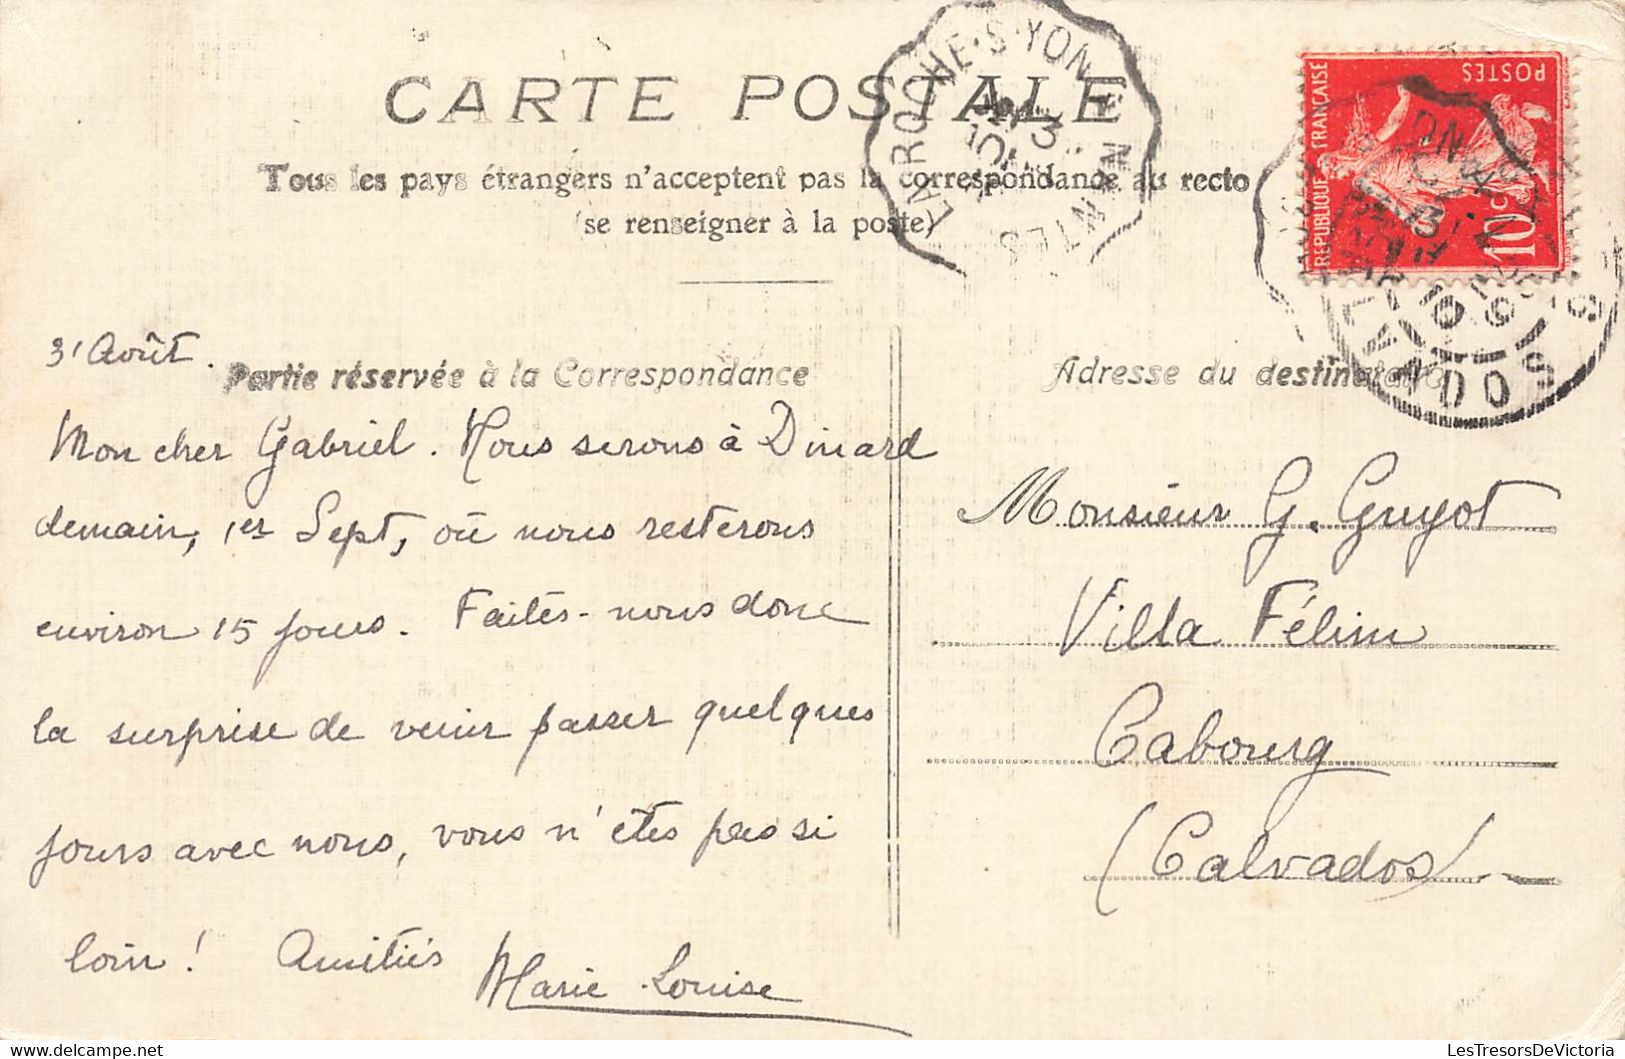 CARTE POSTALE
Tous les pays étrangers n'acceptent pas la correspondance au recto
(se renseigner à la poste)
LA ROCHE-S-YON A NANTES
POSTES
RÉPUBLIQUE FRANÇAISE
10c
CALVADOS
31 Août.
Partie réservée à la Correspondance
Mon cher Gabriel. Nous serons à Dinard
demain, 1er Sept, où nous resterons
environ 15 jours. Faites-nous donc
la surprise de venir passer quelques
jours avec nous, vous n'êtes pas si
loin! Amitiés Marie-Louise
Adresse du destinataire
Monsieur G. Guyot
Villa Félim
Cabourg
(Calvados)
LesTresorsDeVictoria